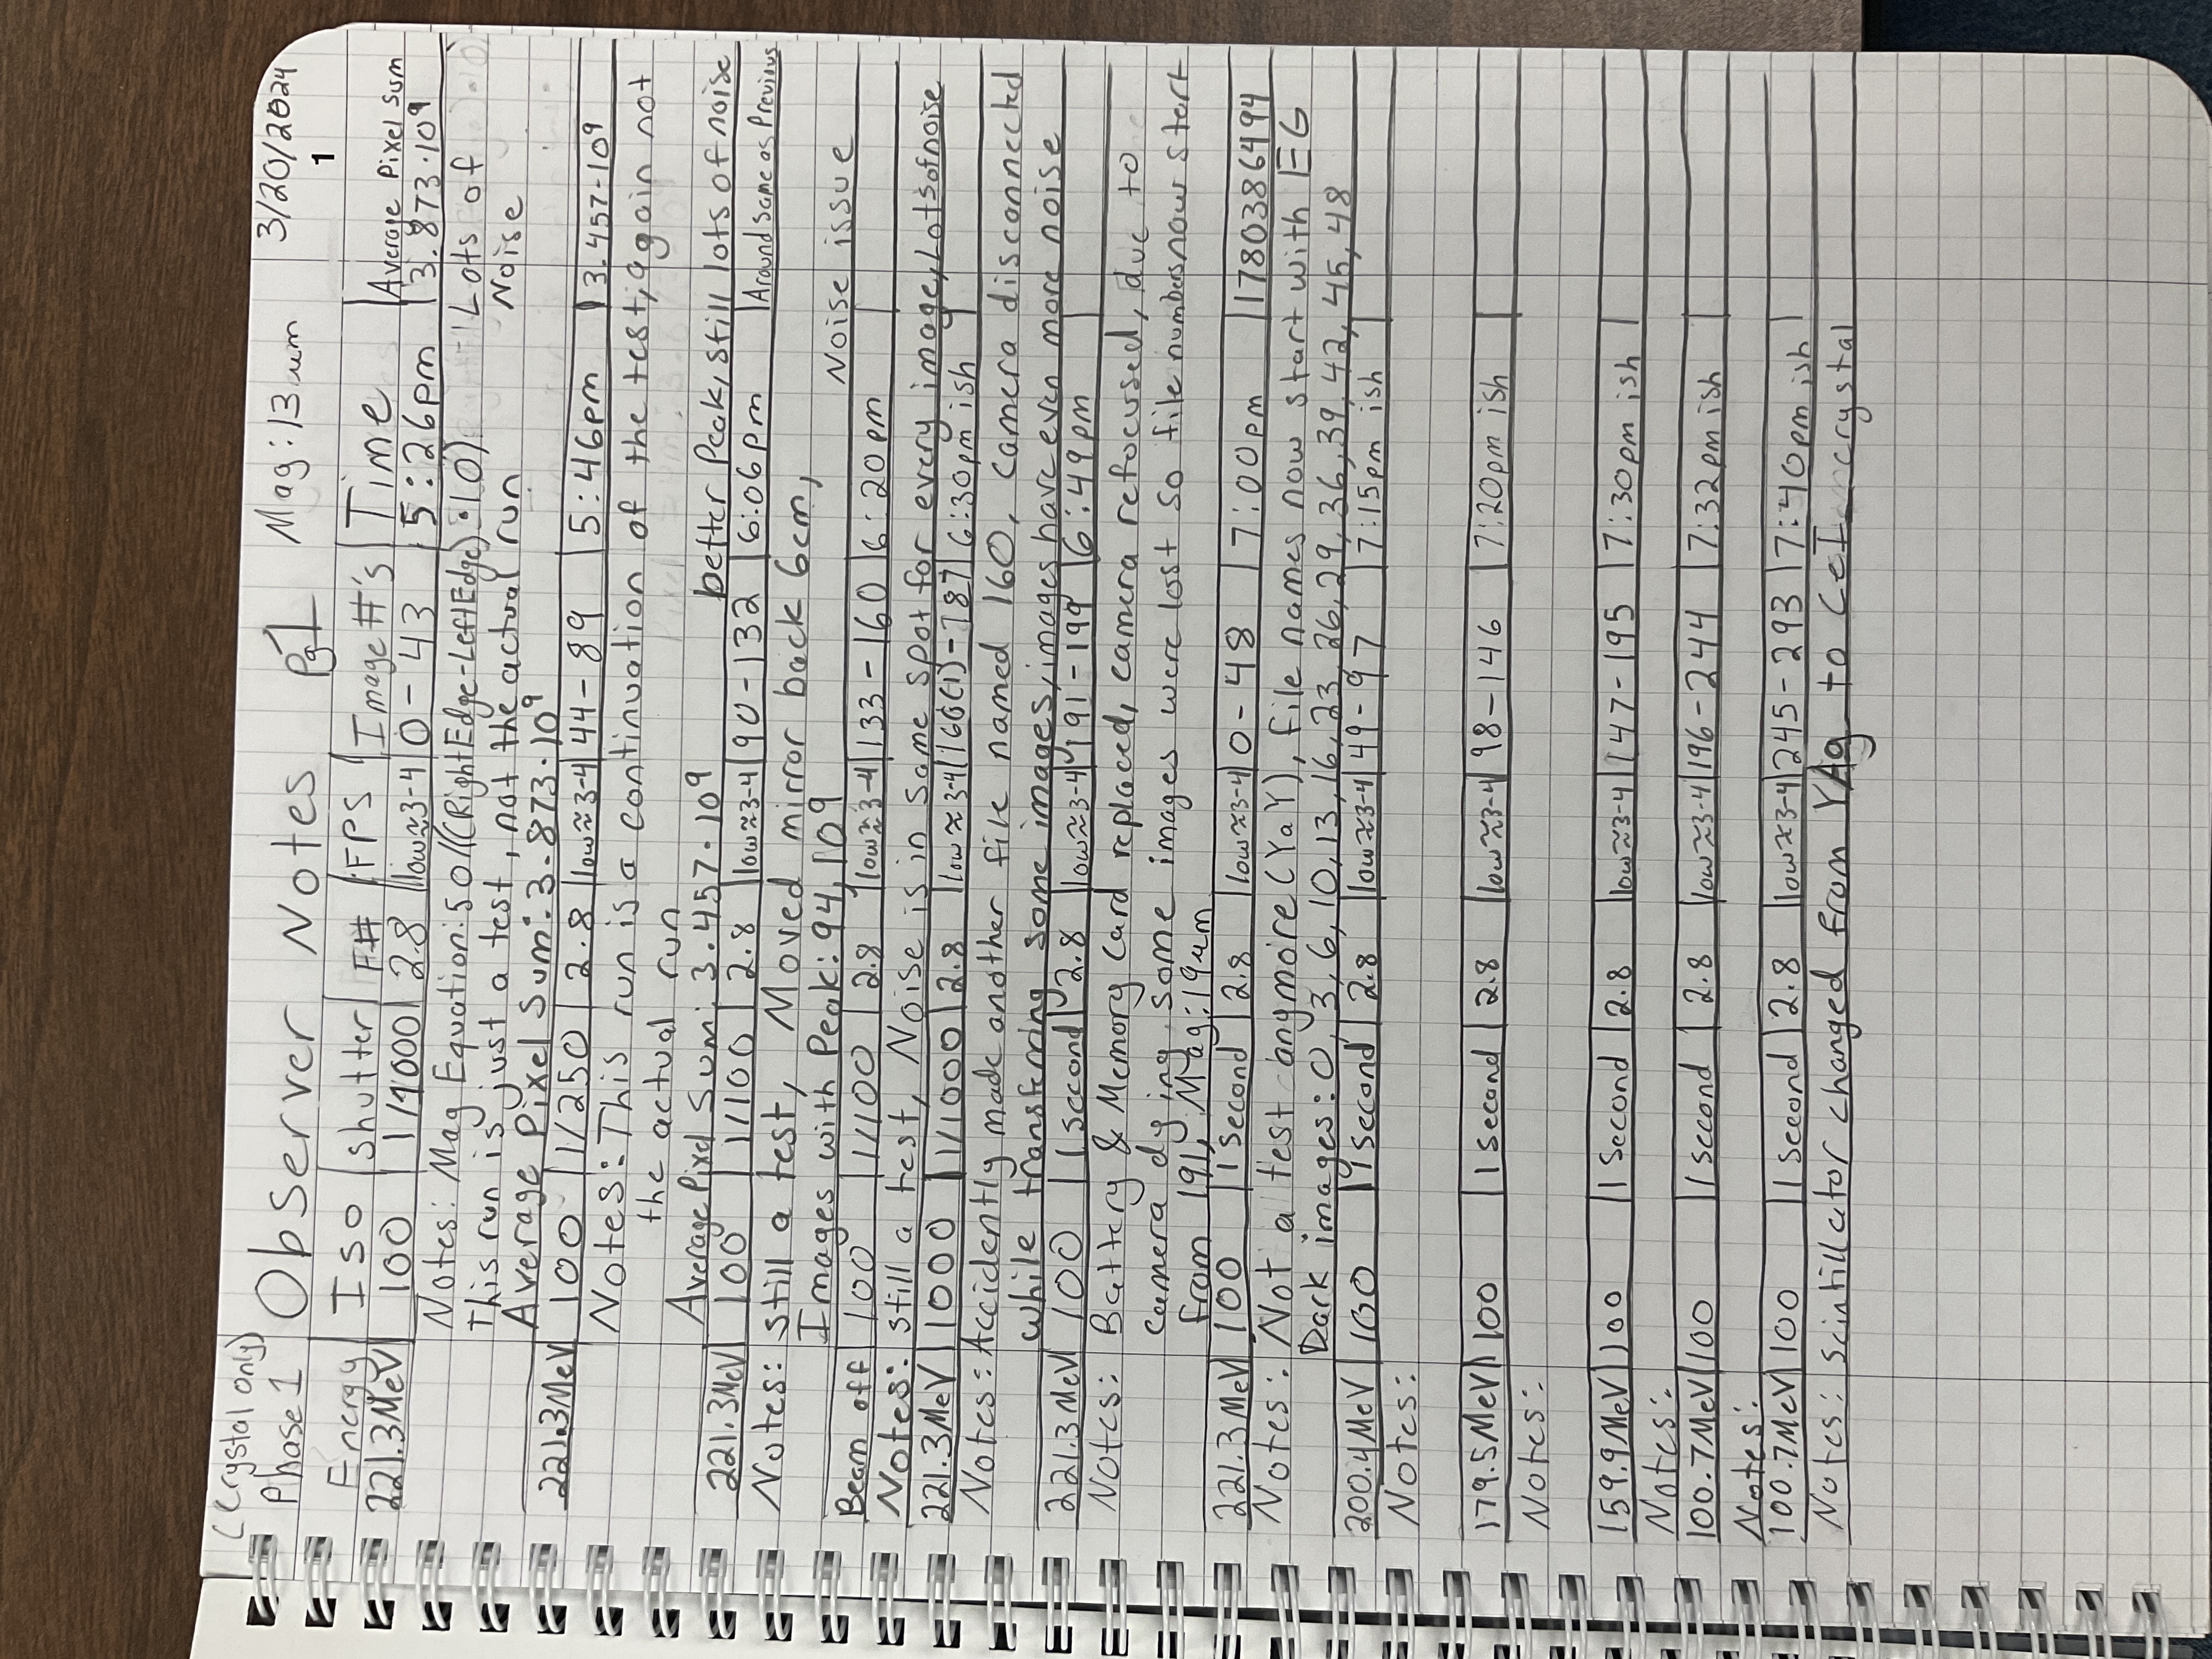 (Crystal only)
Phase 1 Observer Notes pg1 Mag: 13 um 3/20/2024
1
Energy Iso Shutter F# FPS Image #'s Time Average Pixel Sum
221.3MeV 100 1/1000 2.8 low≈3-4 0-43 5:26pm 3.873·10⁹
Notes: Mag Equation: 50/((RightEdge-LeftEdge)·10) Lots of
This run is just a test, not the actual run Noise
Average Pixel Sum: 3.873·10⁹
221.3MeV 100 1/250 2.8 low≈3-4 44-89 5:46pm 3.457·10⁹
Notes: This run is a continuation of the test, again not
the actual run
Average Pixel Sum: 3.457·10⁹ better Peak, still lots of noise
221.3MeV 100 1/100 2.8 low≈3-4 90-132 6:06pm Around same as Previous
Notes: still a test, Moved mirror back 6cm,
Images with Peak: 94, 109 Noise issue
Beam off 100 1/100 2.8 low≈3-4 133-160 6:20pm
Notes: still a test, Noise is in same spot for every image, Lots of noise
221.3MeV 1000 1/1000 2.8 low≈3-4 160(1)-187 6:30pm ish
Notes: Accidently made another file named 160, camera disconnected
while transferring some images, images have even more noise
221.3MeV 100 1 second 2.8 low≈3-4 191-199 6:49pm
Notes: Battery & Memory card replaced, camera refocused, due to
camera dying some images were lost so file numbers now start
from 191, Mag: 19um
221.3MeV 100 1 second 2.8 low≈3-4 0-48 7:00pm 1780386494
Notes: Not a test anymore (YaY), file names now start with EG
Dark images: 0, 3, 6, 10, 13, 16, 23, 26, 29, 36, 39, 42, 45, 48
200.4MeV 100 1 second 2.8 low≈3-4 49-97 7:15pm ish
Notes:
179.5MeV 100 1 second 2.8 low≈3-4 98-146 7:20pm ish
Notes:
159.9MeV 100 1 second 2.8 low≈3-4 147-195 7:30pm ish
Notes:
100.7MeV 100 1 second 2.8 low≈3-4 196-244 7:32pm ish
Notes:
100.7MeV 100 1 second 2.8 low≈3-4 245-293 7:40pm ish
Notes: scintillator changed from YAg to CeI crystal